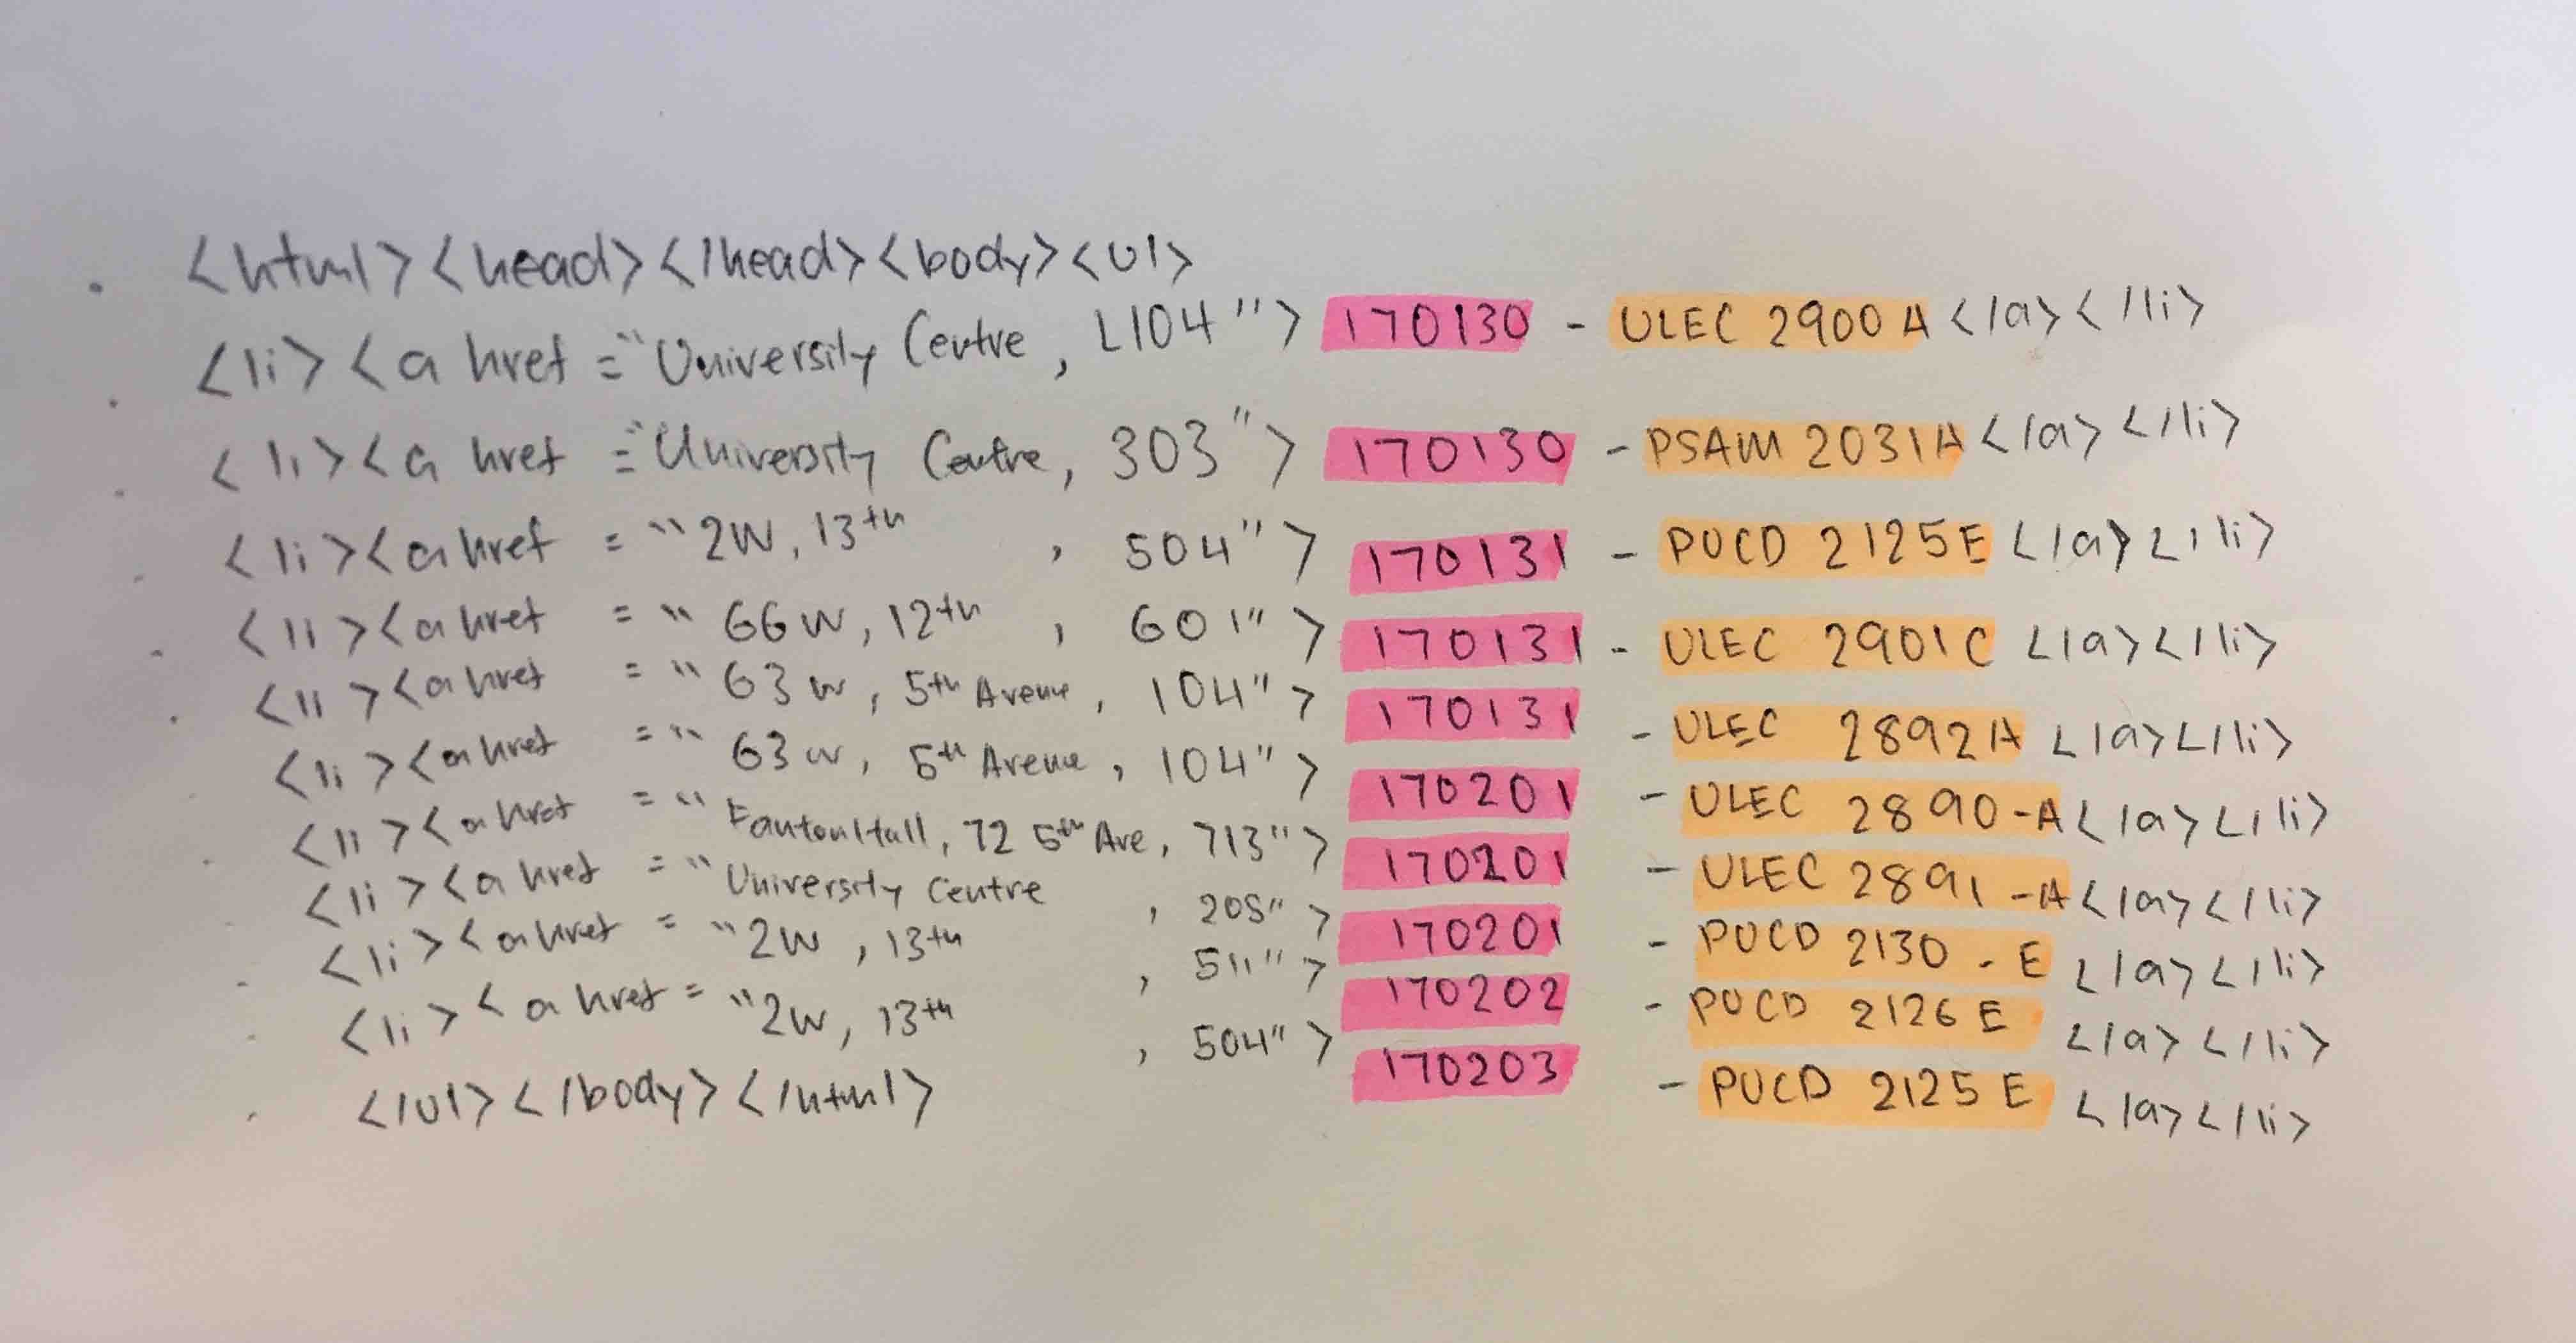 <html><head></head><body><ul>
<li><a href="University Centre, L104">170130 - ULEC 2900A</a></li>
<li><a href="University Centre, 303">170130 - PSAM 2031A</a></li>
<li><a href="2W, 13th, 504">170131 - PUCD 2125E</a></li>
<li><a href="66W, 12th, 601">170131 - ULEC 2901C</a></li>
<li><a href="63w, 5th Avenue, 104">170131 - ULEC 2892A</a></li>
<li><a href="63w, 5th Avenue, 104">170201 - ULEC 2890-A</a></li>
<li><a href="Fanton Hall, 72 5th Ave, 713">170201 - ULEC 2891-A</a></li>
<li><a href="University Centre, 205">170201 - PUCD 2130-E</a></li>
<li><a href="2W, 13th, 511">170202 - PUCD 2126E</a></li>
<li><a href="2W, 13th, 504">170203 - PUCD 2125E</a></li>
</ul></body></html>